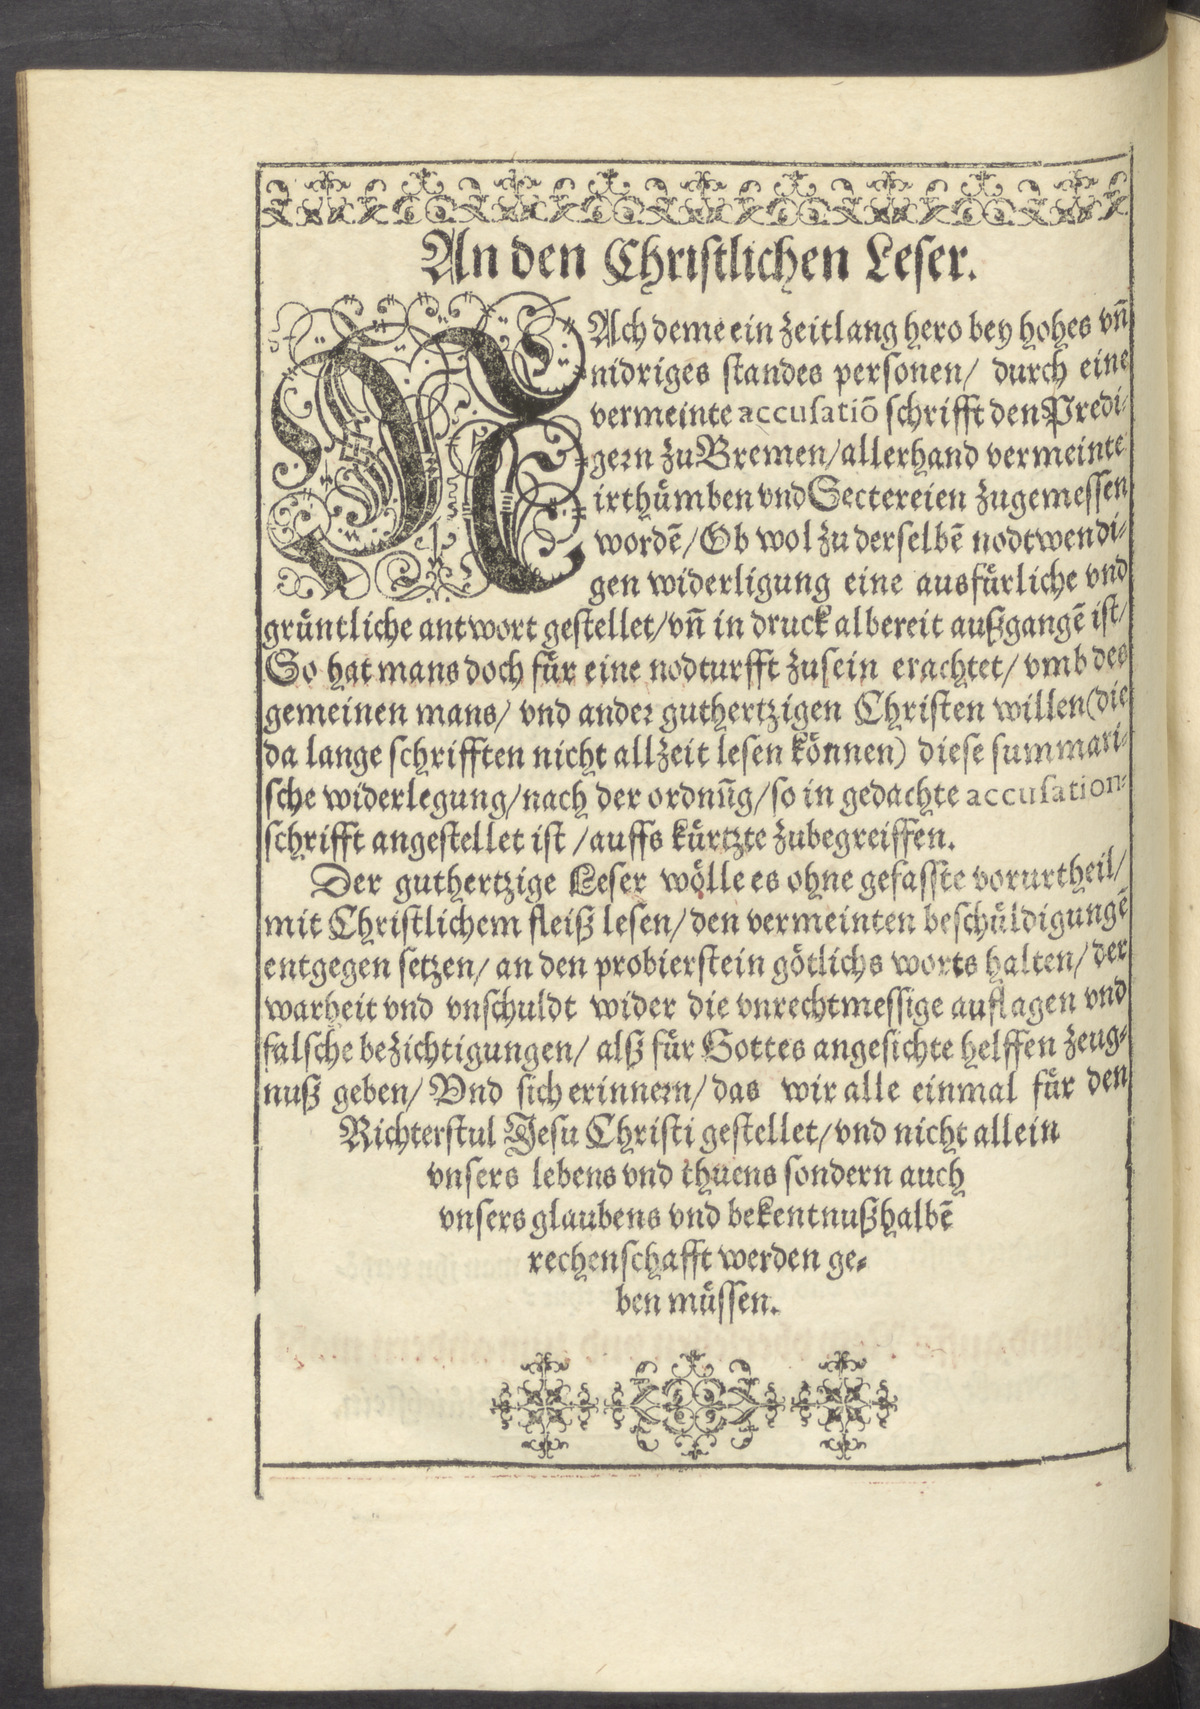 An den Christlichen Leser.
NAch deme ein zeitlang hero bey hohes vñ
nidriges standes personen/ durch eine
vermeinte accusatiõ schrifft den Predi-
gern zu Bremen/ allerhand vermeinte
irthuͤmben vnd Sectereien zugemessen
wordē/ Ob wol zu derselbē nodtwendi-
gen widerligung eine ausfuͤrliche vnd
gruͤntliche antwort gestellet/ vñ in druck albereit außgangē ist/
So hat mans doch fuͤr eine nodturfft zusein erachtet/ vmb des
gemeinen mans/ vnd ander guthertzigen Christen willen (die
da lange schrifften nicht allzeit lesen koͤnnen) diese summari-
sche widerlegung/ nach der ordnũg/ so in gedachte accusation-
schrifft angestellet ist/ auffs kuͤrtzte zubegreiffen.
Der guthertzige Leser woͤlle es ohne gefasste vorurtheil/
mit Christlichem fleiß lesen/ den vermeinten beschuͤldigungē
entgegen setzen/ an den probierstein goͤtlichs worts halten/ der
warheit vnd vnschuldt wider die vnrechtmessige auflagen vnd
falsche bezichtigungen/ alß fuͤr Gottes angesichte helffen zeug-
nuß geben/ Vnd sich erinnern/ das wir alle einmal fuͤr den
Richterstul Jesu Christi gestellet/ vnd nicht allein
vnsers lebens vnd thuens sondern auch
vnsers glaubens vnd bekentnuß halbē
rechenschafft werden ge-
ben muͤssen.